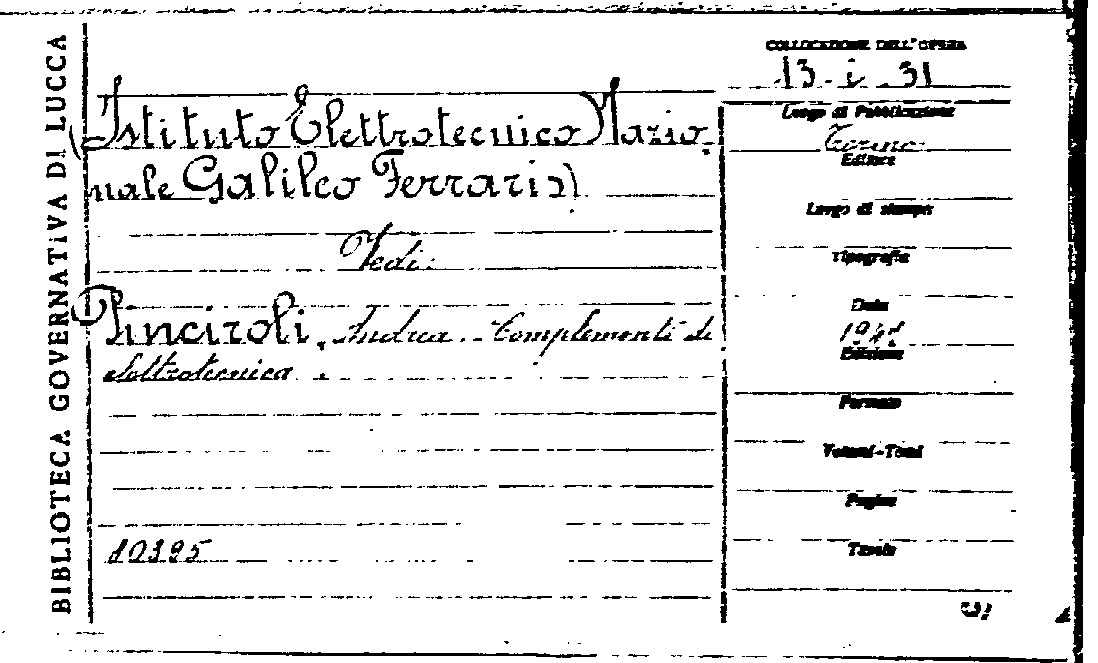 BIBLIOTECA GOVERNATIVA DI LUCCA
COLLOCAZIONE DELL'OPERA
13. i. 31
(Istituto Elettrotecnico Nazio-
nale Galileo Ferraris)
Vedi:
Pinciroli, Andrea. Complementi di
elettrotecnica.
10395
Luogo di Pubblicazione
Torino
Editore
Luogo di stampa
Tipografia
Data
Edizione
Formato
Volumi-Tomi
Pagine
Tavole